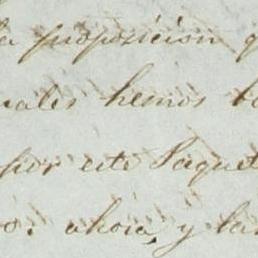 la proposicion q
uales hemos to
por este Paquet
o. ahora, y las